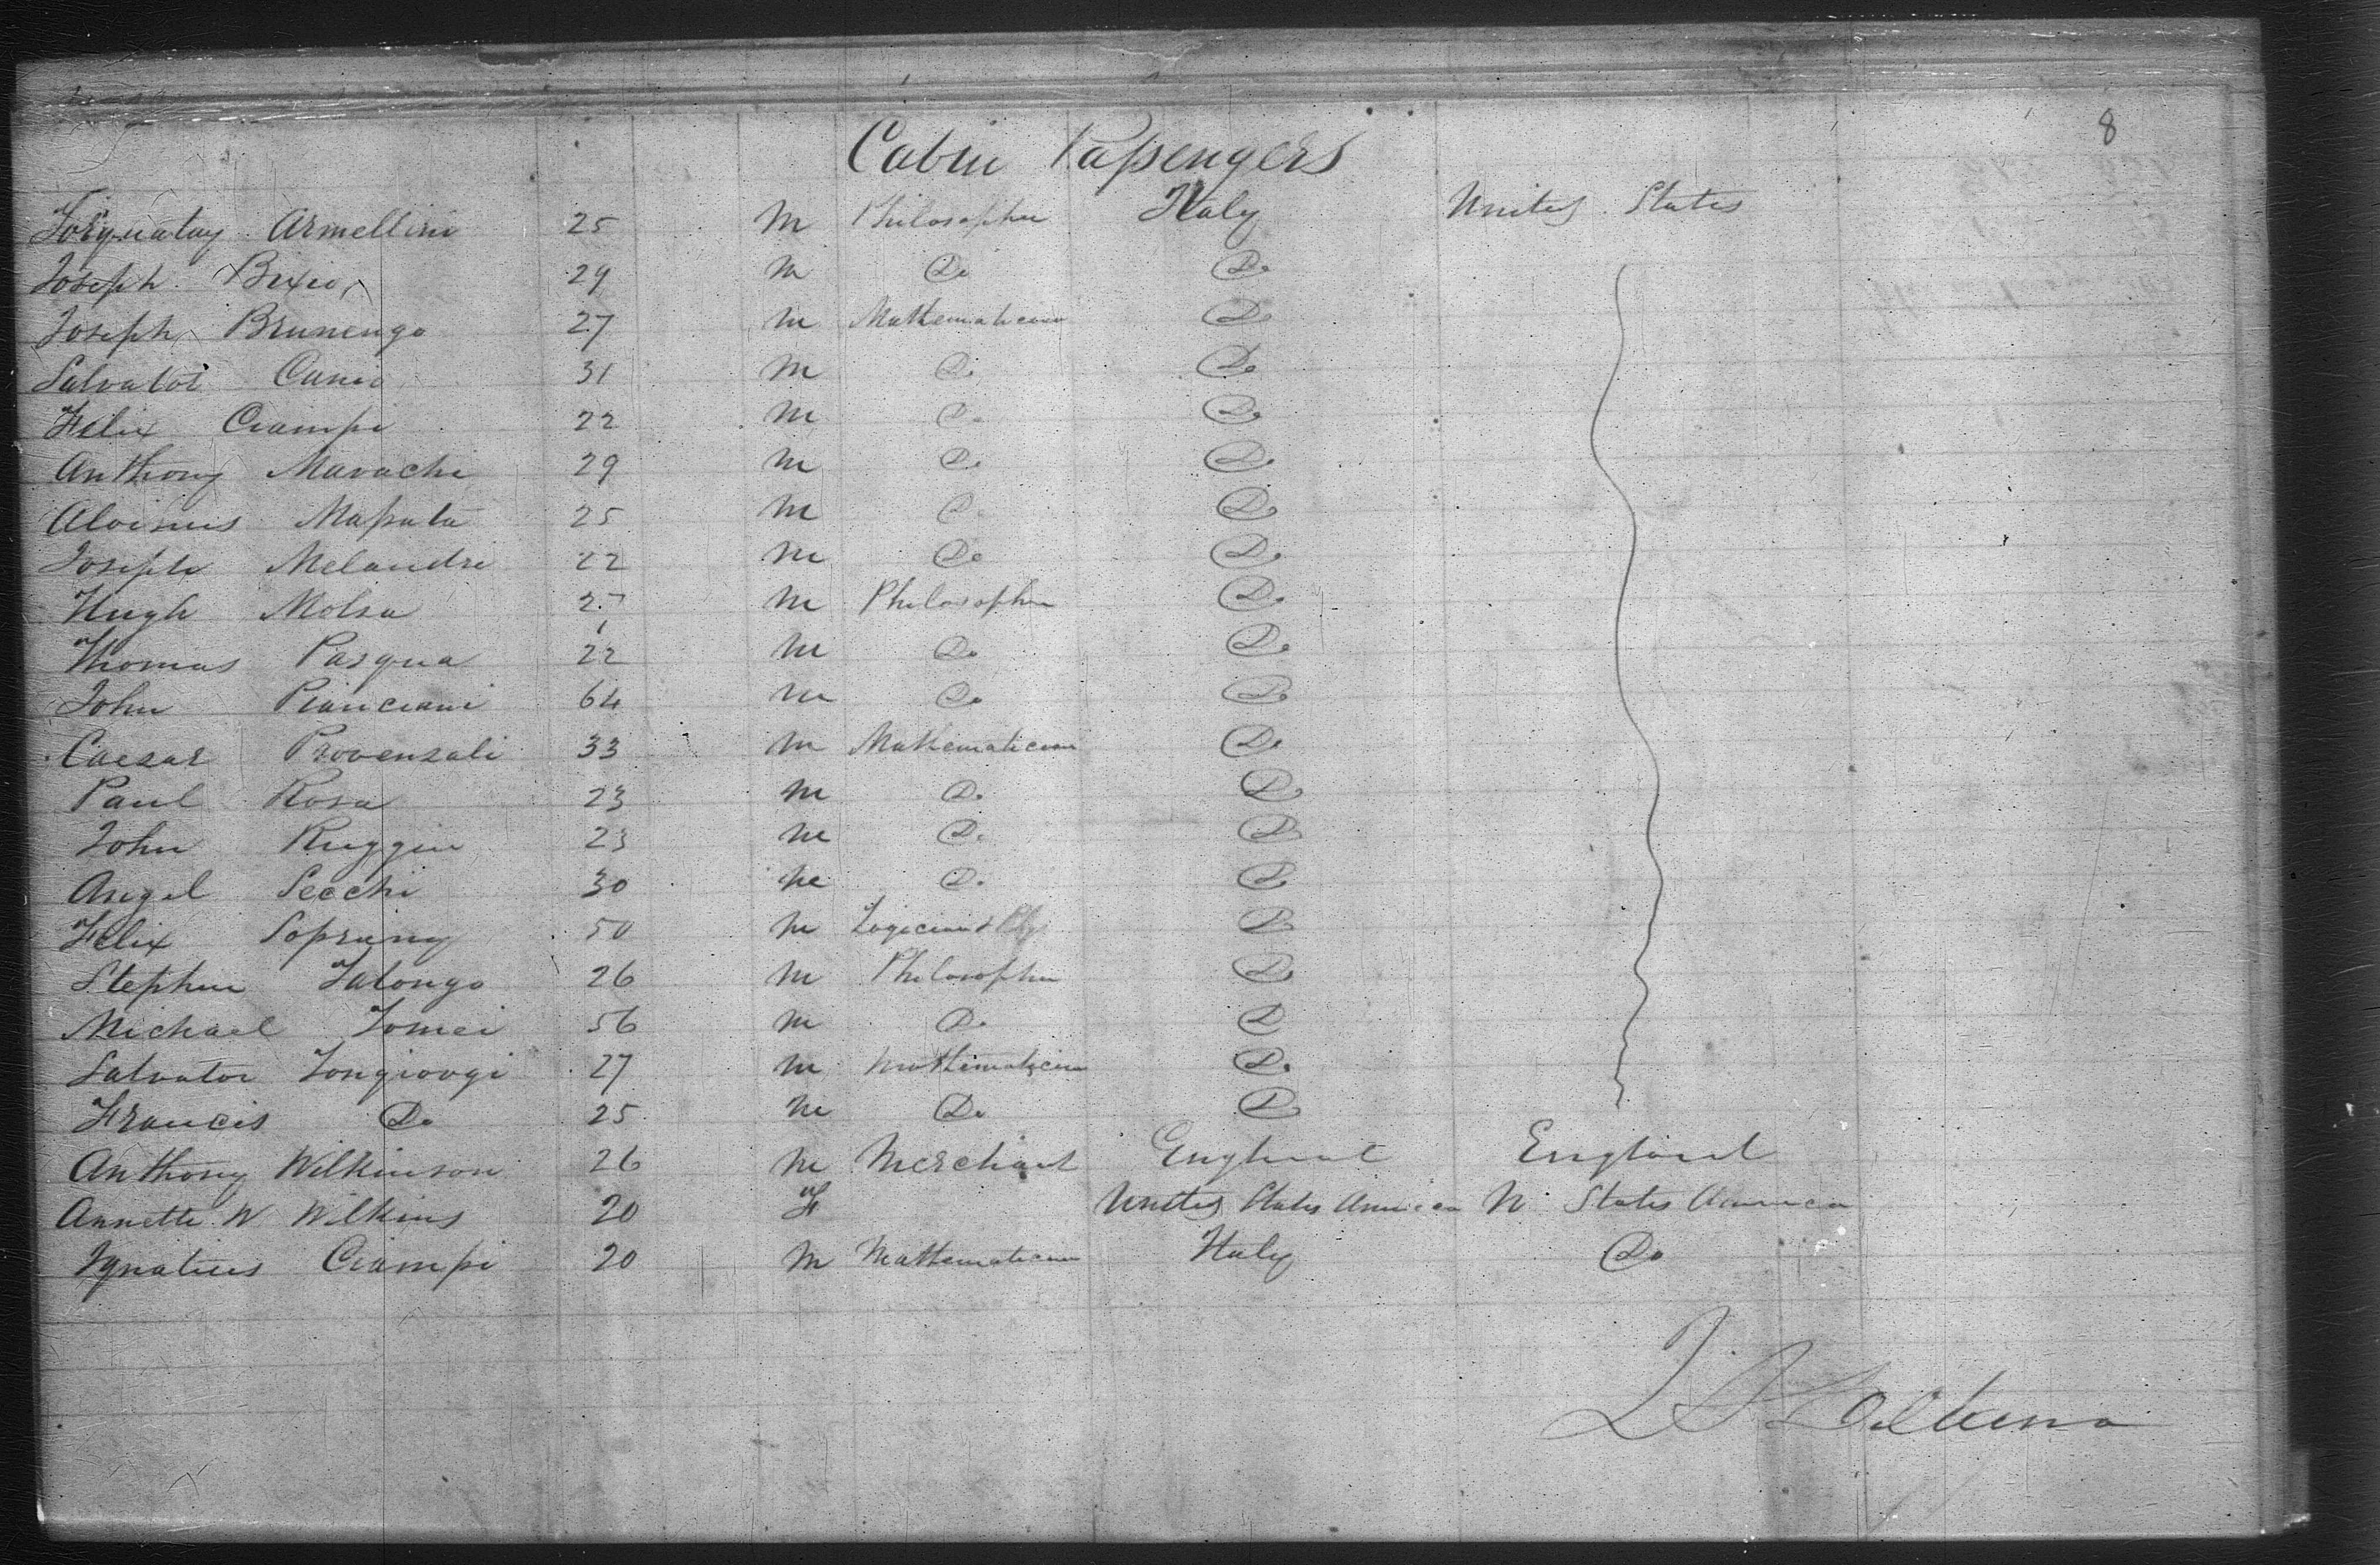 8
Cabin Passengers
Torquatuy Armellini 25 M Philosopher Italy United States
Joseph Bixio 29 M Do Do
Joseph Brunengo 27 M Mathematician Do
Salvator Canio 31 M Do Do
Felix Ciampi 22 M Do Do
Anthony Marachi 29 M Do Do
Aloisius Massata 25 M Do Do
Joseph Melandri 22 M Do Do
Hugh Molza M Philosopher Do
Thomas Pasqua 22 M Do Do
John Pianciani 64 M Do Do
Caesar Provenzali 33 M Mathematician Do
Paul Rosa 23 M Do Do
John Ruggiu 23 M Do Do
Angel Secchi 30 M Do Do
Felix Soprany 50 M Logician & Do
Stephen Talongo 26 M Philosopher Do
Michael Tomei 56 M Do Do
Salvator Tongiorgi 27 M Mathematician Do
Francis Do 25 M Do Do
Anthony Wilkinson 26 M Merchant England England
Annette W Wilkins 20 F United States America U States America
Ignatius Ciampi 20 M Mathematician Italy Do